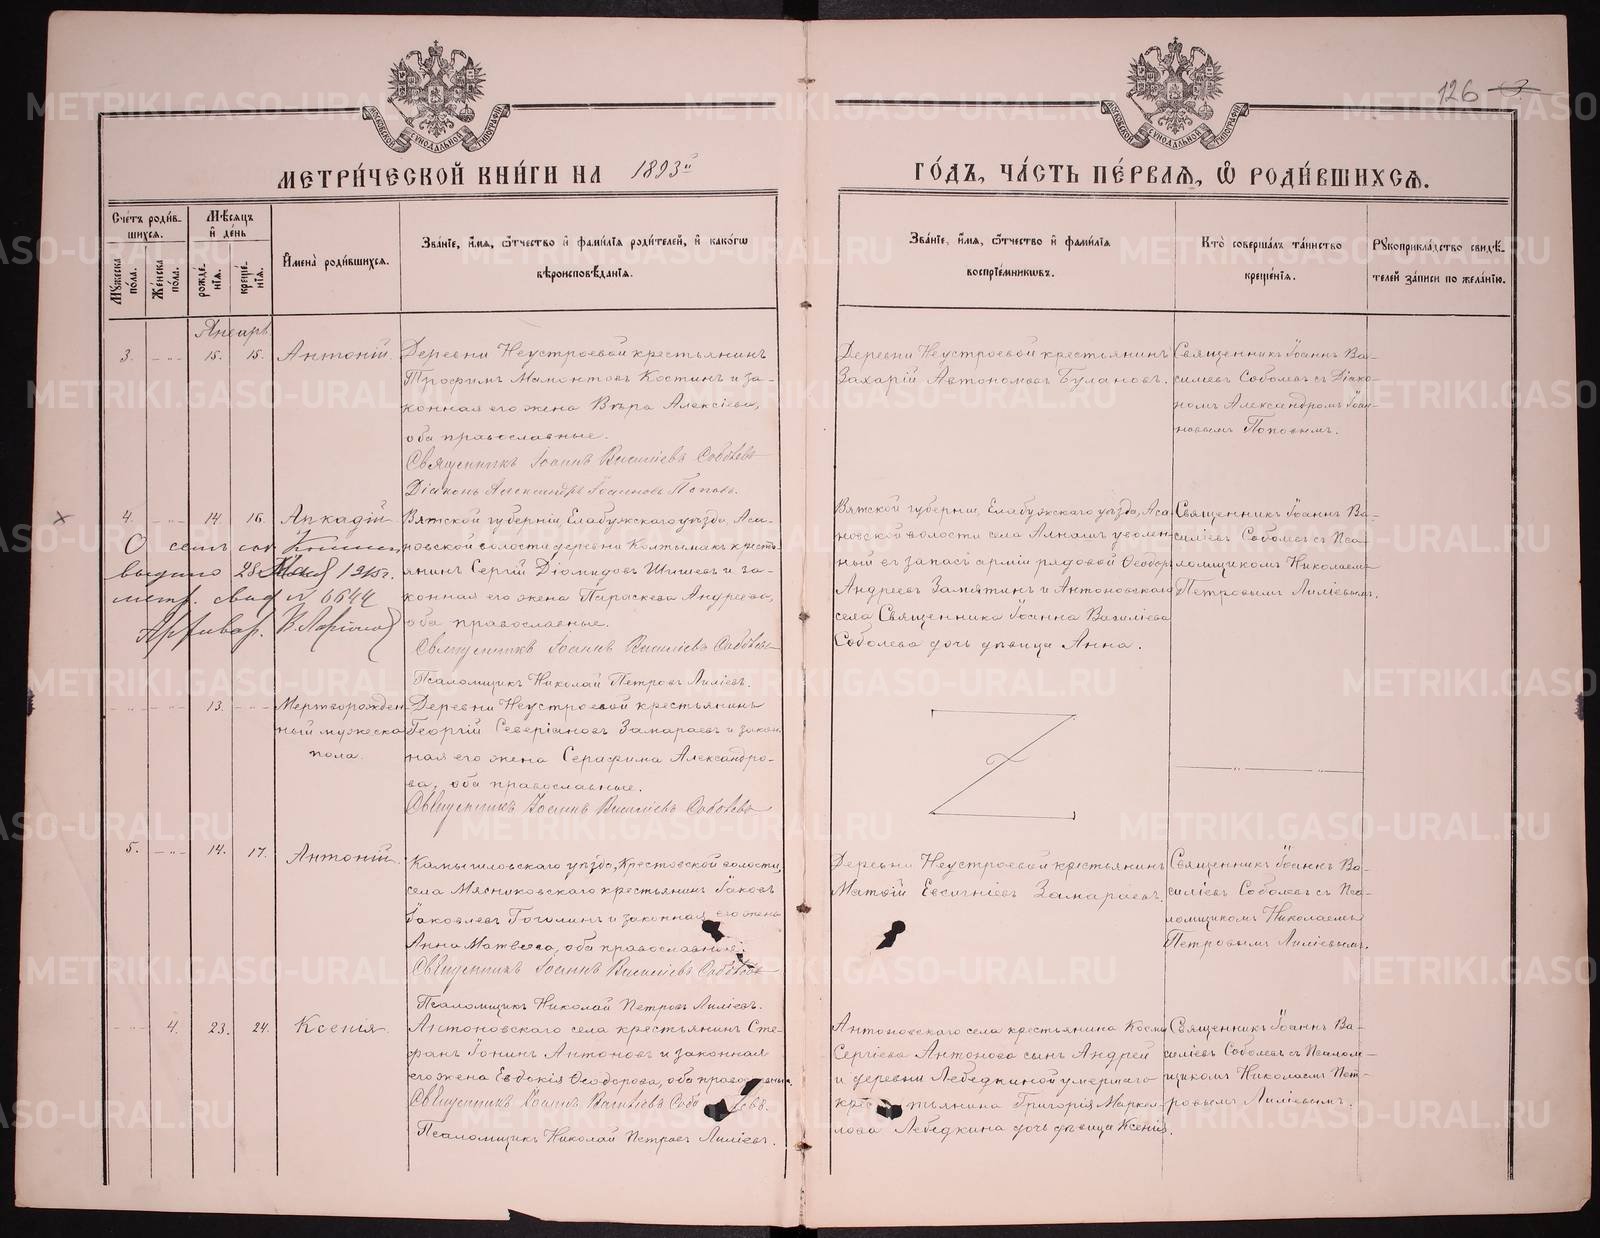 126
МЕТРИ́ЧЕСКОЙ КНИ́ГИ НА 1893й
ГО́ДЪ, ЧА́СТЬ ПЕ́РВАѦ, Ѡ РОДИ́ВШИХСѦ.
Сче́тъ роди́в-
шихся.
Мѣ́сяцъ
и҆ де́нь
Му́жеска по́ла.
Же́нска по́ла.
рожде́нїя.
креще́нїя.
И҆мена̀ роди́вшихся.
Зва́нїе, и҆́мя, ѻ҆́тчество и҆ фами́лїя роди́телей, и҆ како́гѡ
вѣроисповѣ́данїя.
Зва́нїе, и҆́мя, ѻ҆́тчество и҆ фами́лїя
воспрїе́мниковъ.
Кто̀ соверша́лъ та́инство
креще́нїя.
Рꙋкоприкла́дство свидѣ́-
телей за́писи по жела́нїю.
Январь
3. 15. 15. Антоній.
Деревни Неустроевой крестьянинъ
Трофимъ Мамонтовъ Костинъ и за-
конная его жена Вѣра Алексіева,
оба православные.
Священникъ Іоаннъ Василіевъ Соболевъ
Діаконъ Александръ Іоанновъ Поповъ.
Деревни Неустроевой крестьянинъ
Захарій Автономовъ Булановъ.
Священникъ Іоаннъ Ва-
силіевъ Соболевъ съ Діако-
номъ Александромъ Іоан-
новымъ Поповымъ.
4. 14. 16. Аркадій
О семъ
выдано 28 Мая 1915г.
метр. свид № 6644
Архивар.
Вятской губерніи, Елабужскаго уѣзда,
волости деревни кресть-
янинъ Сергій Діомидовъ Шишевъ и за-
конная его жена Параскева Андреева,
оба православные.
Священникъ Іоаннъ Василіевъ Соболевъ
Псаломщикъ Николай Петровъ Лиліевъ.
Вятской губерніи, Елабужскаго уѣзда, Аса-
новской волости села Алнашъ уволен-
ный въ запасъ арміи рядовой Ѳеодоръ
Андреевъ Замятинъ и Антоновскаго
села Священника Іоанна Василіева
Соболева дочь дѣвица Анна.
Священникъ Іоаннъ Ва-
силіевъ Соболевъ съ Пса-
ломщикомъ Николаемъ
Петровымъ Лиліевымъ.
13. Мертворожден-
ный мужеска
пола.
Деревни Неустроевой крестьянинъ
Георгій Северіановъ Замараевъ и закон-
ная его жена Серафима Александро-
ва, оба православные.
Священникъ Іоаннъ Василіевъ Соболевъ
5. 14. 17. Антоній.
Камышловскаго уѣзда, Крестовской волости,
села Мясниковскаго крестьянинъ Іаковъ
Іаковлевъ Гоголинъ и законная его жена
Анна Матвеева, оба православные.
Священникъ Іоаннъ Василіевъ Соболевъ
Псаломщикъ Николай Петровъ Лиліевъ.
Деревни Неустроевой крестьянинъ
Матвій Евсигніевъ Замараевъ.
Священникъ Іоаннъ Ва-
силіевъ Соболевъ съ Пса-
ломщикомъ Николаемъ
Петровымъ Лиліевымъ.
4. 23. 24. Ксенія.
Антоновскаго села крестьянинъ Сте-
фанъ Іонинъ Антоновъ и законная
его жена Евдокія Ѳеодорова, оба православные.
Священникъ Іоаннъ Василіевъ Соболевъ.
Псаломщикъ Николай Петровъ Лиліевъ.
Антоновскаго села крестьянина Космы
Сергіева Антонова сынъ Андрей
и деревни Лебедкиной умершаго
крестьянина Григорія Маркел-
лова Лебедкина дочь дѣвица Ксенія.
Священникъ Іоаннъ Ва-
силіевъ Соболевъ съ Псалом-
щикомъ Николаемъ Пет-
ровымъ Лиліевымъ.
METRIKI.GASO-URAL.RU